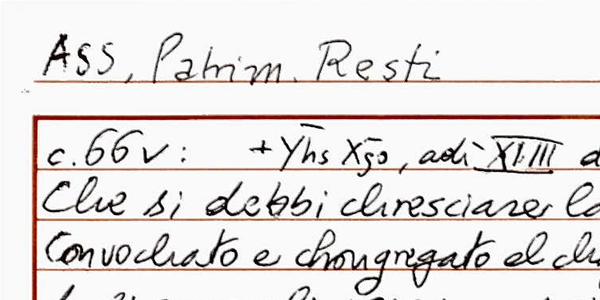 ASS, Patrim. Resti
c. 66v: + Yhs Xp̄o, adì XIIII d
Che si debbi chresciarer la
Convochato e chongregato el ch